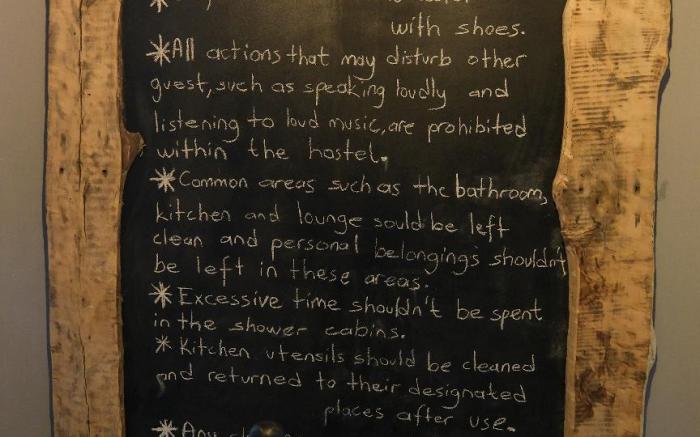 with shoes.
*All actions that may disturb other
guest, such as speaking loudly and
listening to loud music, are prohibited
within the hostel.
*Common areas such as the bathroom,
kitchen and lounge sould be left
clean and personal belongings shouldn't
be left in these areas.
*Excessive time shouldn't be spent
in the shower cabins.
*Kitchen utensils should be cleaned
and returned to their designated
places after use.
*Any